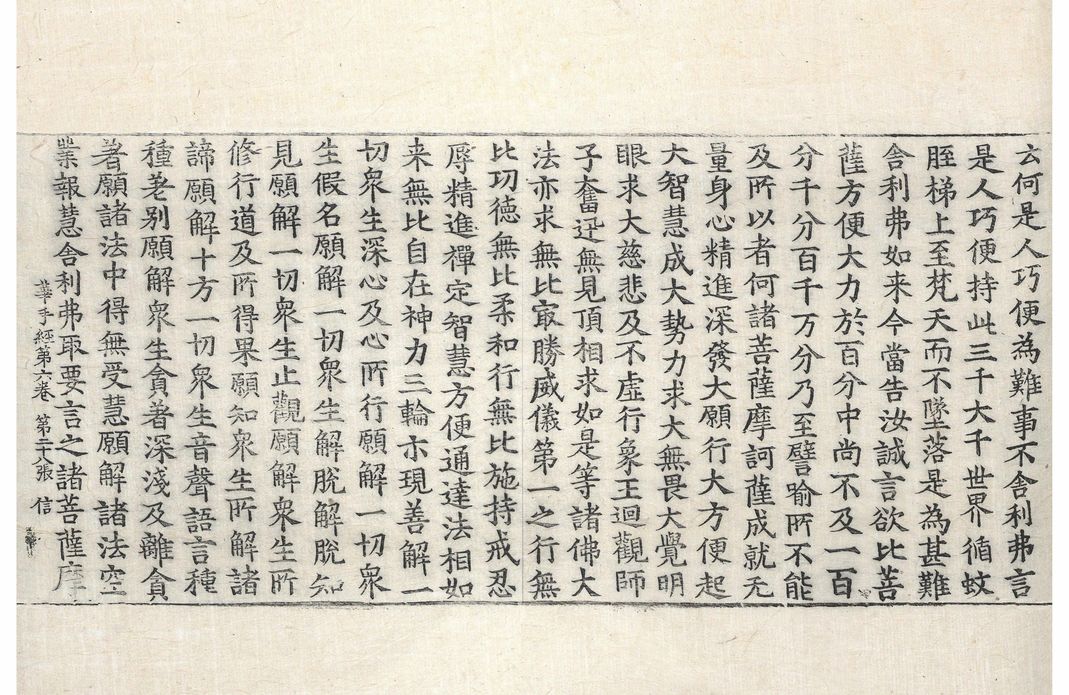 云何是人巧便為難事不舍利弗言
是人巧便持此三千大千世界循蚊
脛梯上至梵天而不墜落是為甚難
舍利弗如来今當告汝誠言欲比菩
薩方便大力於百分中尚不及一百
分千分百千万分乃至譬喻所不能
及所以者何諸菩薩摩訶薩成就无
量身心精進深發大願行大方便起
大智慧成大勢力求大無畏大覺明
眼求大慈悲及不虛行象王迴觀師
子奮迅無見頂相求如是等諸佛大
法亦求無比㝡勝威儀第一之行無
比功德無比柔和行無比施持戒忍
辱精進禪定智慧方便通達法相如
来無比自在神力三輪示現善解一
切眾生深心及心所行願解一切眾
生假名願解一切眾生解脫解脫知
見願解一切眾生止觀願解眾生所
修行道及所得果願知眾生所解諸
諦願解十方一切眾生音聲語言種
種差別願解眾生貪著深淺及離貪
著願諸法中得無受慧願解諸法空
業報慧舍利弗取要言之諸菩薩摩
華手經第六卷 第二十張 信